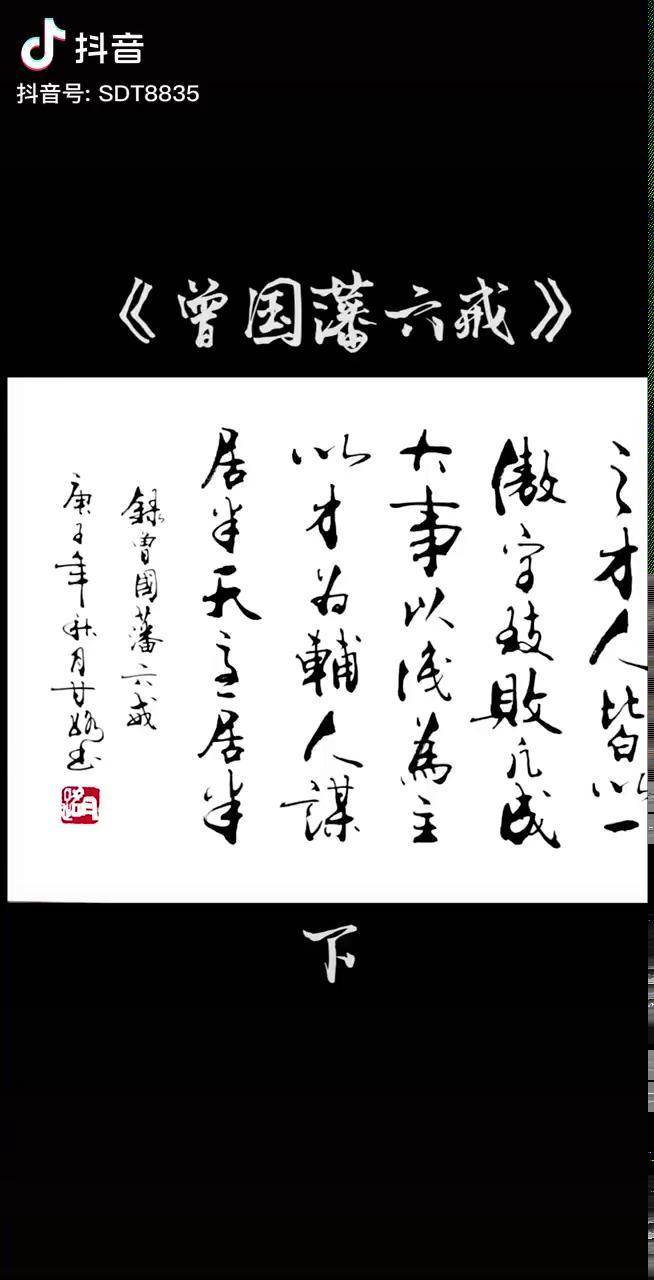 抖音
抖音号: SDT8835
《曾国藩六戒》
之才人皆以一
傲字致敗凡成
大事以識為主
以才为輔人謀
居半天意居半
録曾國藩六戒
庚子年秋月甘书
下